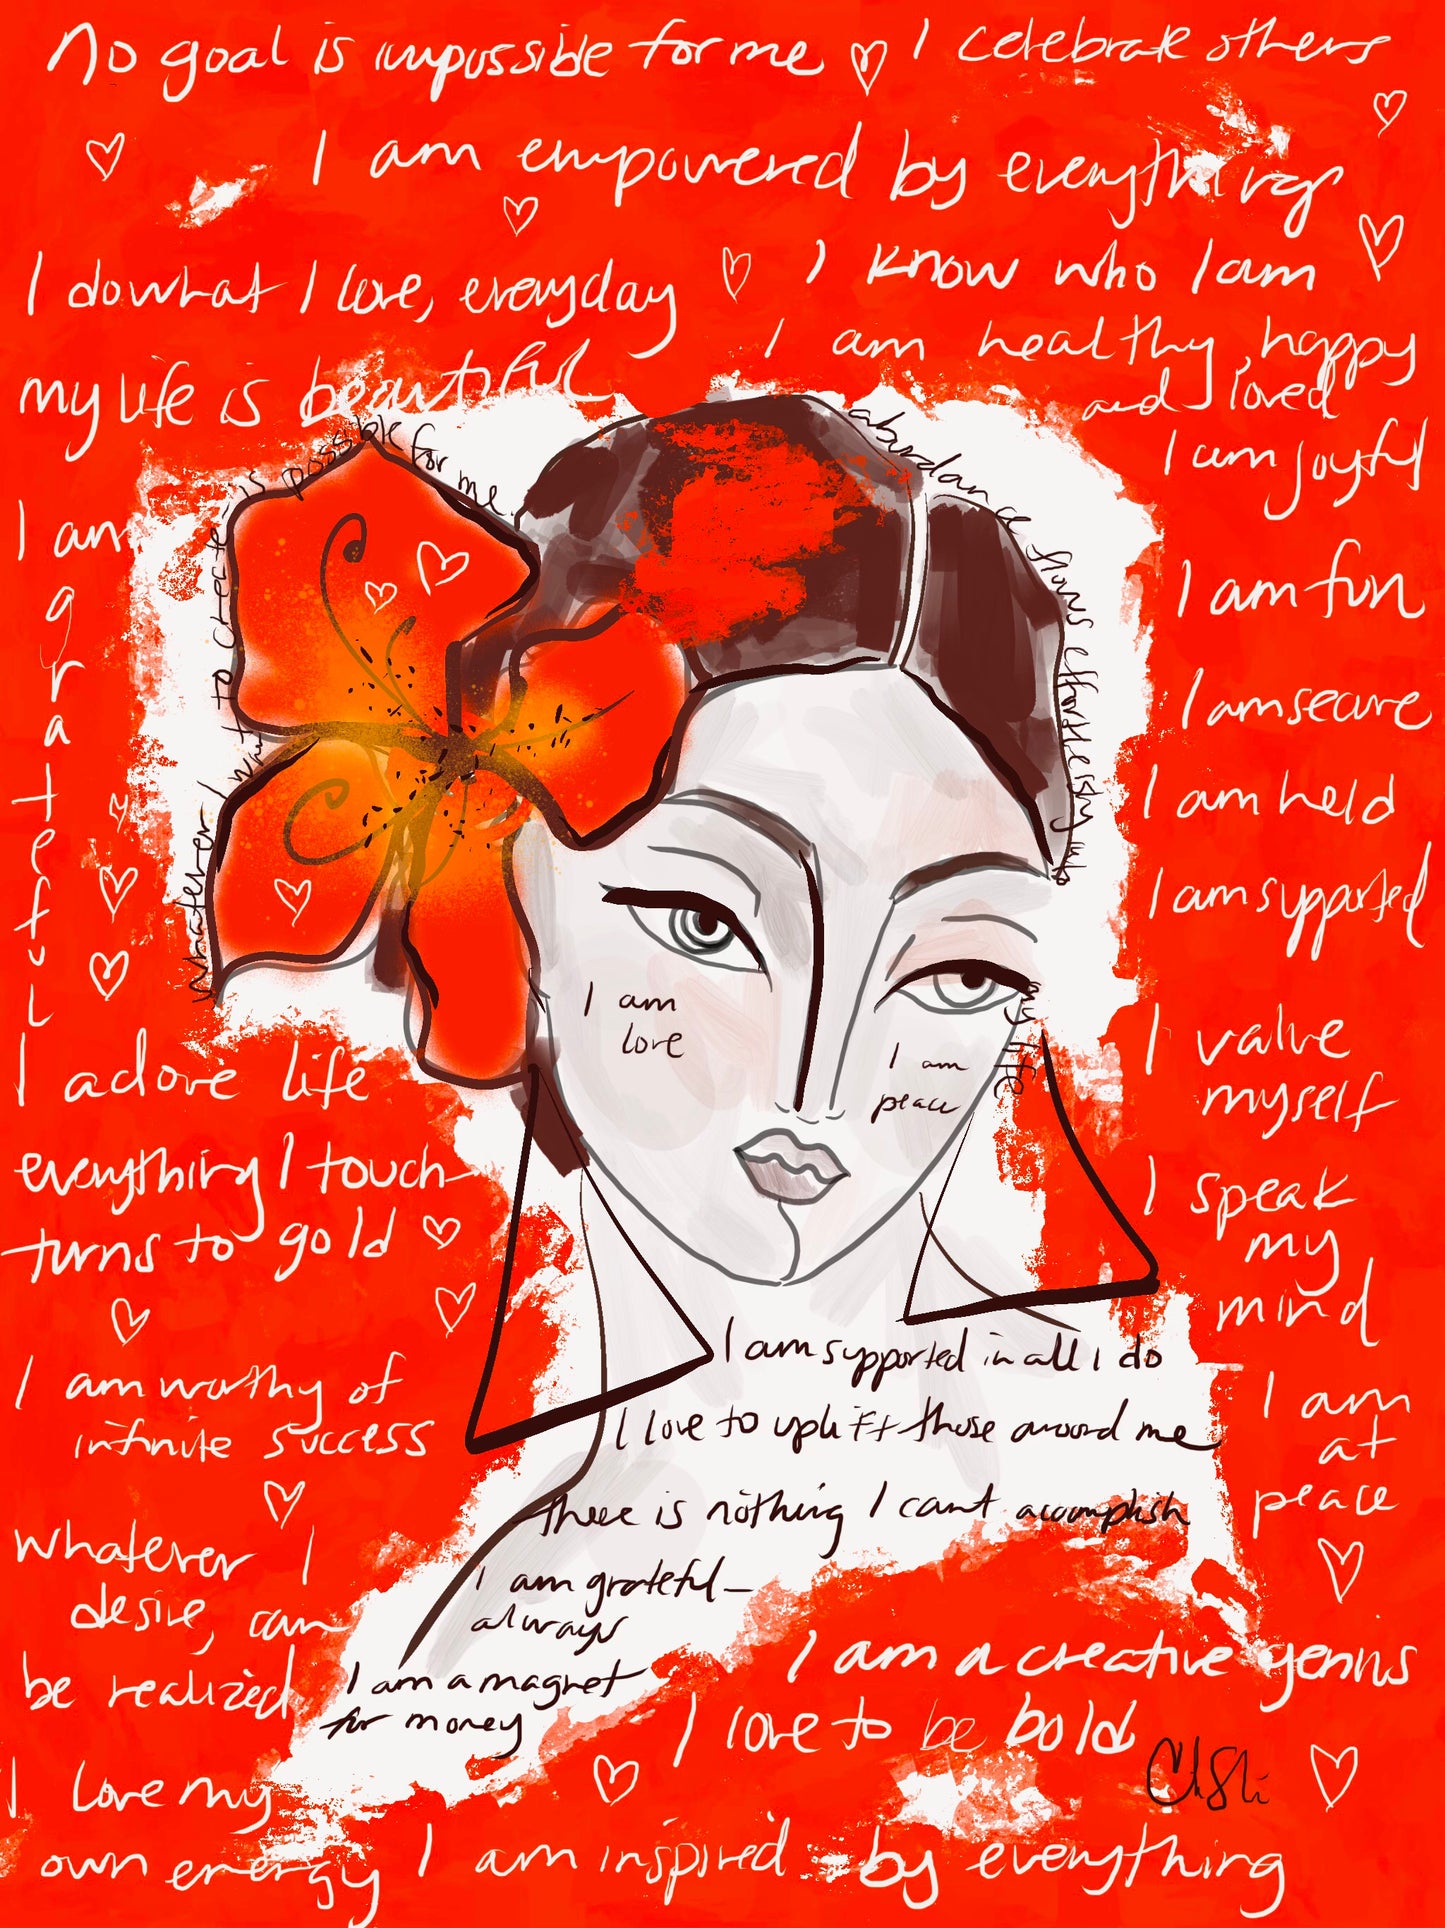 No goal is impossible for me
I celebrate others
I am empowered by everything
I do what I love, everyday
I know who I am
I am healthy, happy
and loved
my life is beautiful
I am joyful
whatever I want to create is possible for me
abundance flows effortlessly into
my life
I am
grateful
I am fun
I am secure
I am held
I am supported
I am
love
I am
peace
I adore life
I value
myself
everything I touch
turns to gold
I speak
my
mind
I am worthy of
infinite success
I am supported in all I do
I am
at
peace
I love to uplift those around me
there is nothing I cant accomplish
whatever I
desire, can
be realized
I am grateful
always
I am a magnet
for money
I am a creative genius
I love to be bold
I love my
own energy
I am inspired by everything